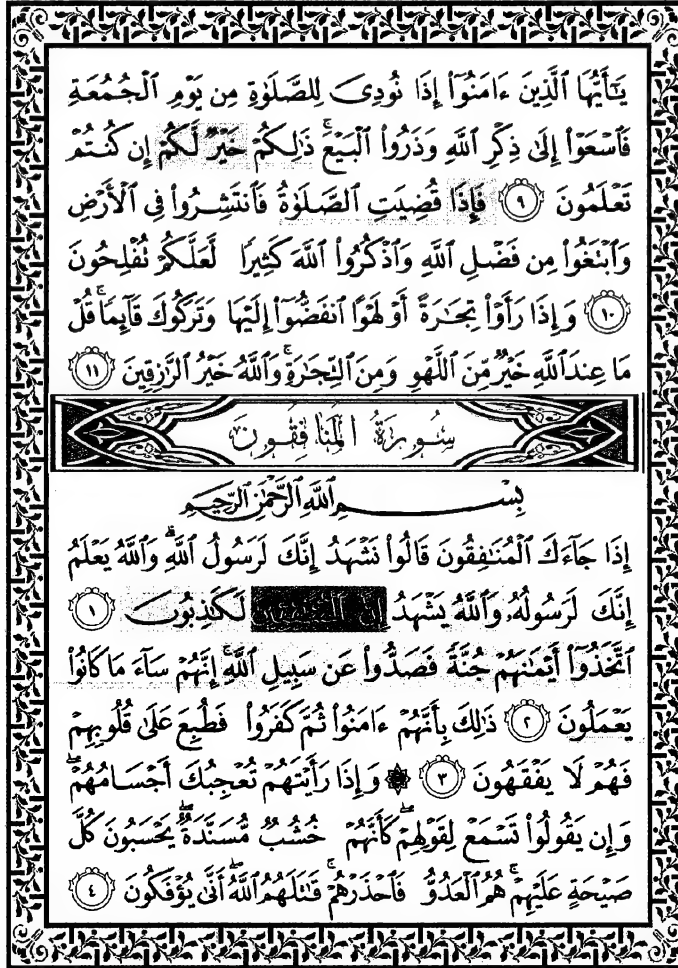 يَـٰٓأَيُّهَا ٱلَّذِينَ ءَامَنُوٓا۟ إِذَا نُودِىَ لِلصَّلَوٰةِ مِن يَوْمِ ٱلْجُمُعَةِ
فَٱسْعَوْا۟ إِلَىٰ ذِكْرِ ٱللَّهِ وَذَرُوا۟ ٱلْبَيْعَ ۚ ذَٰلِكُمْ خَيْرٌ لَّكُمْ إِن كُنتُمْ
تَعْلَمُونَ ٩ فَإِذَا قُضِيَتِ ٱلصَّلَوٰةُ فَٱنتَشِرُوا۟ فِى ٱلْأَرْضِ
وَٱبْتَغُوا۟ مِن فَضْلِ ٱللَّهِ وَٱذْكُرُوا۟ ٱللَّهَ كَثِيرًا لَّعَلَّكُمْ تُفْلِحُونَ
١٠ وَإِذَا رَأَوْا۟ تِجَـٰرَةً أَوْ لَهْوًا ٱنفَضُّوٓا۟ إِلَيْهَا وَتَرَكُوكَ قَآئِمًا ۚ قُلْ
مَا عِندَ ٱللَّهِ خَيْرٌ مِّنَ ٱللَّهْوِ وَمِنَ ٱلتِّجَـٰرَةِ ۚ وَٱللَّهُ خَيْرُ ٱلرَّٰزِقِينَ ١١
سُورَةُ المُنَافِقُونَ
بِسْمِ ٱللَّهِ ٱلرَّحْمَـٰنِ ٱلرَّحِيمِ
إِذَا جَآءَكَ ٱلْمُنَـٰفِقُونَ قَالُوا۟ نَشْهَدُ إِنَّكَ لَرَسُولُ ٱللَّهِ ۗ وَٱللَّهُ يَعْلَمُ
إِنَّكَ لَرَسُولُهُۥ وَٱللَّهُ يَشْهَدُ إِنَّ ٱلْمُنَـٰفِقِينَ لَكَـٰذِبُونَ ١
ٱتَّخَذُوٓا۟ أَيْمَـٰنَهُمْ جُنَّةً فَصَدُّوا۟ عَن سَبِيلِ ٱللَّهِ ۚ إِنَّهُمْ سَآءَ مَا كَانُوا۟
يَعْمَلُونَ ٢ ذَٰلِكَ بِأَنَّهُمْ ءَامَنُوا۟ ثُمَّ كَفَرُوا۟ فَطُبِعَ عَلَىٰ قُلُوبِهِمْ
فَهُمْ لَا يَفْقَهُونَ ٣ ۞ وَإِذَا رَأَيْتَهُمْ تُعْجِبُكَ أَجْسَامُهُمْ ۖ
وَإِن يَقُولُوا۟ تَسْمَعْ لِقَوْلِهِمْ ۖ كَأَنَّهُمْ خُشُبٌ مُّسَنَّدَةٌ ۖ يَحْسَبُونَ كُلَّ
صَيْحَةٍ عَلَيْهِمْ ۚ هُمُ ٱلْعَدُوُّ فَٱحْذَرْهُمْ ۚ قَـٰتَلَهُمُ ٱللَّهُ ۖ أَنَّىٰ يُؤْفَكُونَ ٤